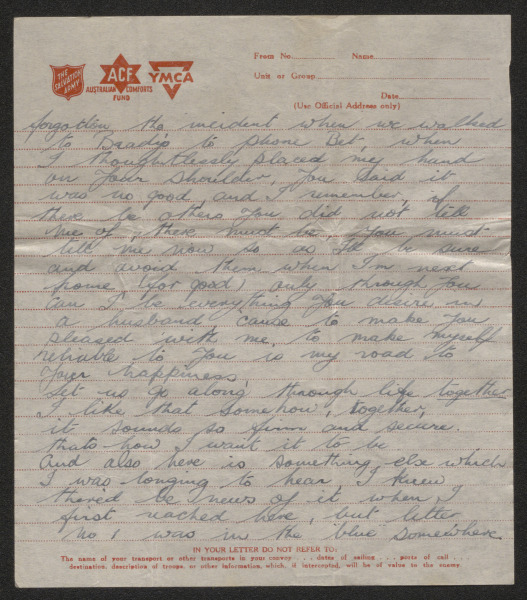 From No. Name
THE SALVATION ARMY
ACF
AUSTRALIAN COMFORTS FUND
YMCA
Unit or Group
Date
(Use Official Address only)
forgotten the incident when we walked
to Brady's to phone Bet, when
I thoughtlessly placed my hand
on your shoulder, you said it
was no good, and I remember, if
there be others you did not tell
me of, there must be, you must
tell me now so as I'll be sure
and avoid them when I'm next
home, (for good) only through you
can I be everything you desire in
a husband 'cause to make you
pleased with me, to make myself
reliable to you is my road to
your happiness.
Let us go along through life together
I like that somehow, together,
it sounds so firm and secure.
thats how I want it to be
And also here is something else which
I was longing to hear, I knew
there'd be news of it when I
first reached here, but letter
No 1 was in the blue somewhere.
IN YOUR LETTER DO NOT REFER TO:
The name of your transport or other transports in your convoy . . . dates of sailing . . . ports of call . . .
destination, description of troops, or other information, which, if intercepted, will be of value to the enemy